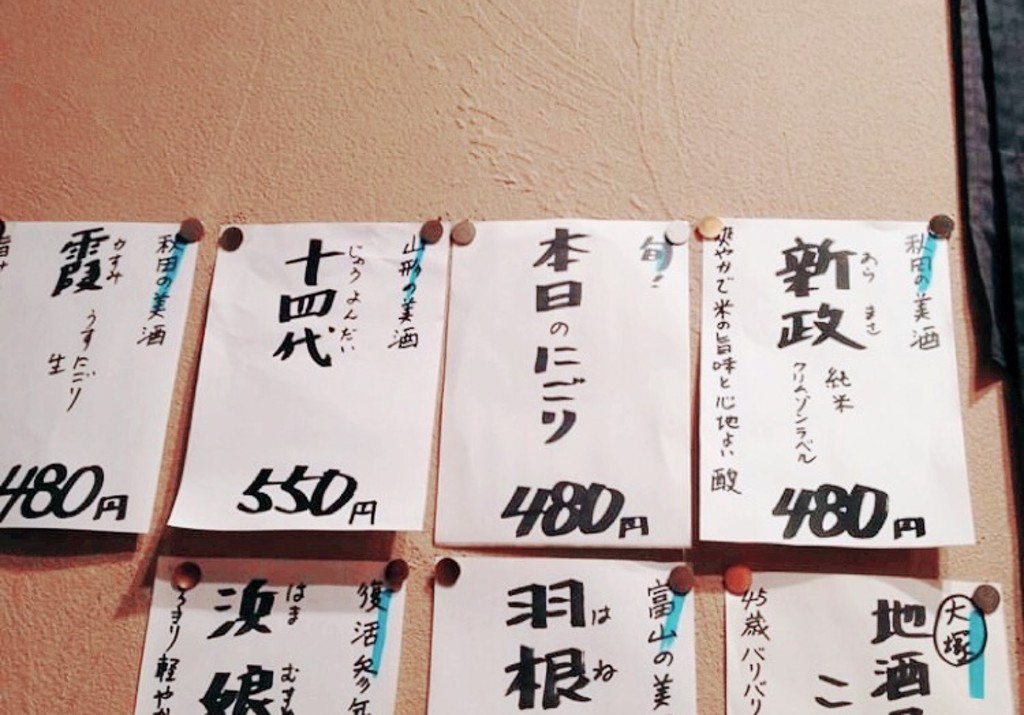 秋田の美酒
あらまさ
新政
純米
クリムゾンラベル
爽やかで米の旨味と心地よい酸
480円
旬!
本日のにごり
480円
山形の美酒
じゅうよんだい
十四代
550円
秋田の美酒
かすみ
霞
うすにごり
生
480円
大塚
地酒
こ
45歳バリバリ
富山の美
はね
羽根
復活
はま むすめ
浜娘
軽やか